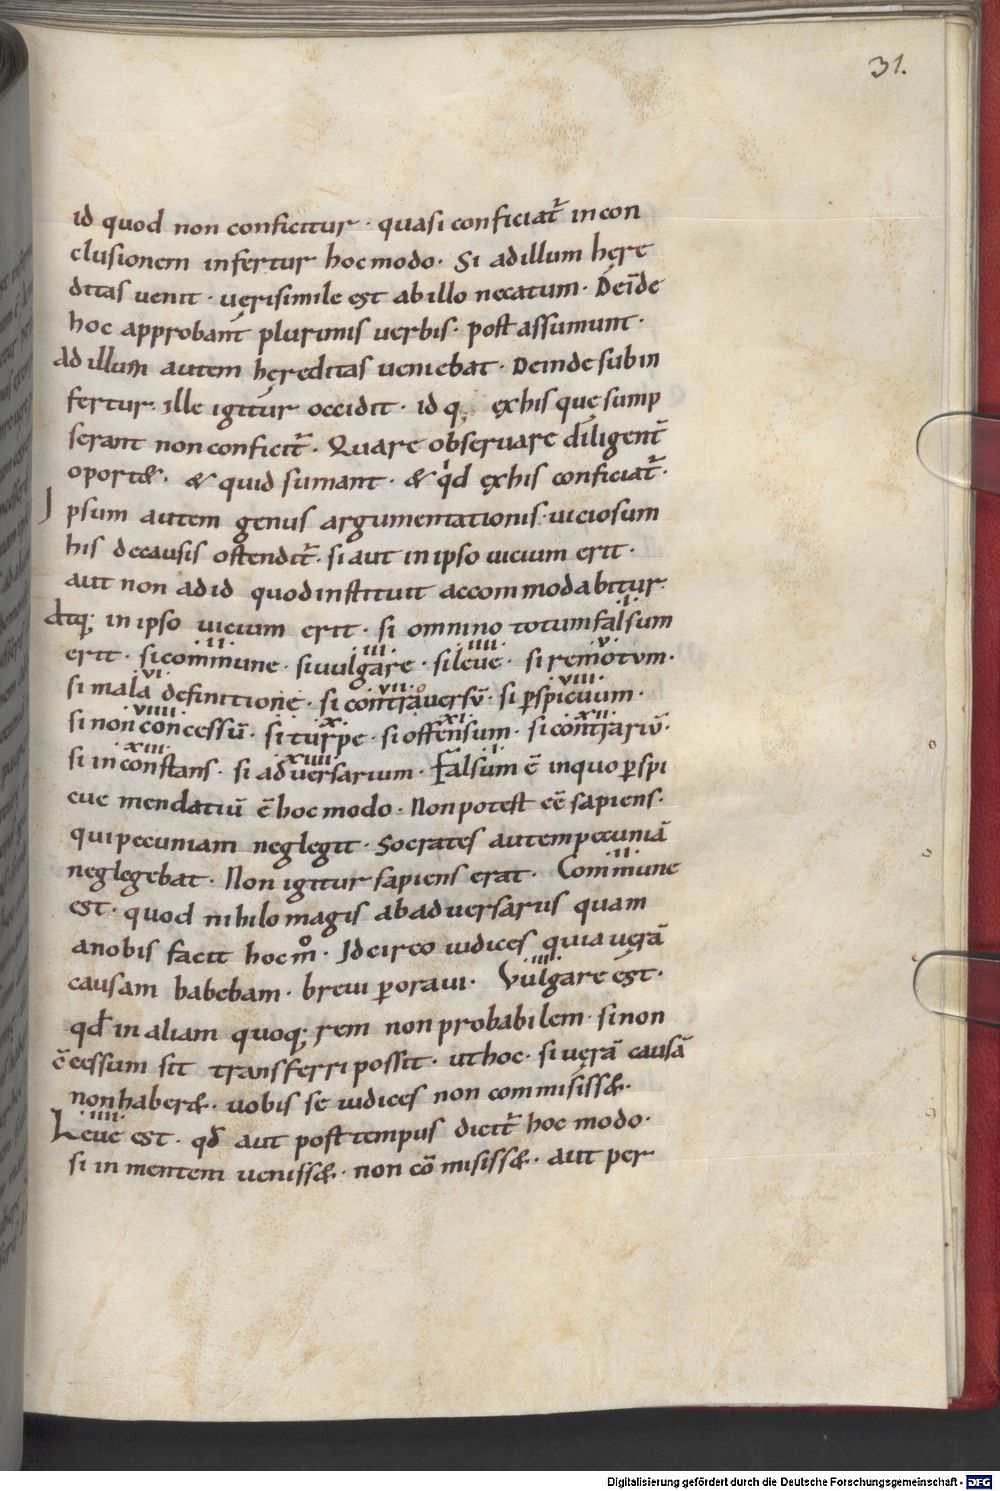 31.
id quod non conficitur · quasi conficiat̅ incon
clusionem infertur hocmodo · Si adillum here
ditas uenit · uęrisimile est abillo necatum · Dei̅de
hoc approbant̅ plurimis uerbis · post assumunt ·
Ad illum autem hęreditas ueniebat · Deinde subin
fertur · Ille igitur occidit · id q; exhis quę sump
serant non conficit̅ · Quare obseruare diligent̅
oport& · & quid sumant · & qd exhis conficiat̅ ·
Ipsum autem genus argumentationis · uiciosum
his decausis ostendit̅ · si aut inipso uicium erit ·
aut non adid quodinstituit accommodabitur ·
Atq; in ipso uicium erit · si omnino totumfalsum
erit · sicommune · siuulgare · sileue · si remotum ·
si mala definitione · si controuersu̅ · si pspicuum ·
si nonconcessu̅ · si turpe · si offensum · si contrariu̅ ·
si inconstans · si aduersarium · Falsum e̅ inquo pspi
cue mendatiu̅ e̅ hocmodo · Nonpotest ee̅ sapiens ·
quipecuniam neglegit · Socrates autempecunia̅
neglegebat · Non igitur sapiens erat · Commune
est · quod nihilomagis abaduersariis quam
anobis facit hocmo · Idcirco iudices quiauęra̅
causam habebam · breui poraui · Vulgare est ·
qd̅ in aliam quoq; rem nonprobabilem · sinon
c̅cessum sit transferripossit · uthoc · si uęra̅ causa̅
nonhaber& · uobis se iudices non commisiss& ·
Leue est · qd̅ aut posttempus dicit̅ hoc modo ·
si in mentem ueniss& · non co̅misiss& · aut per
Digitalisierung gefördert durch die Deutsche Forschungsgemeinschaft - DFG